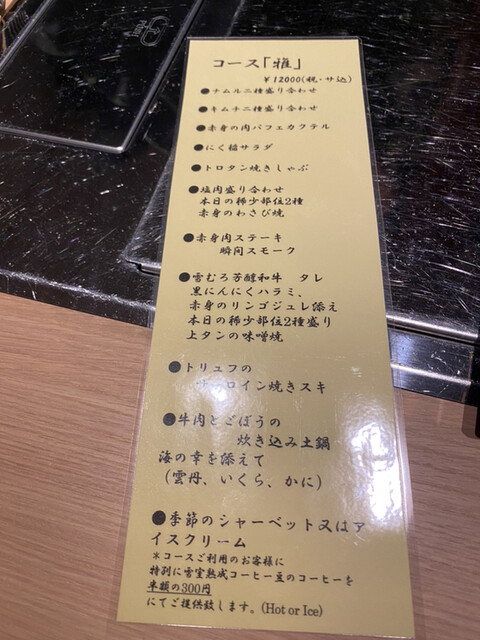 コース「雅」
￥12000(税・サ込)
●ナムル二種盛り合わせ
●キムチ二種盛り合わせ
●赤身の肉パフェカクテル
●にく稲サラダ
●トロタン焼きしゃぶ
●塩肉盛り合わせ
本日の稀少部位2種
赤身のわさび焼
●赤身肉ステーキ
瞬間スモーク
●雪むろ芳醇和牛 タレ
黒にんにくハラミ、
赤身のリンゴジュレ添え
本日の稀少部位2種盛り
上タンの味噌焼
●トリュフの
サーロイン焼きスキ
●牛肉とごぼうの
炊き込み土鍋
海の幸を添えて
(雲丹、いくら、かに)
●季節のシャーベット又はア
イスクリーム
＊コースご利用のお客様に
特別に雪室熟成コーヒー豆のコーヒーを
半額の300円
にてご提供致します。(Hot or Ice)